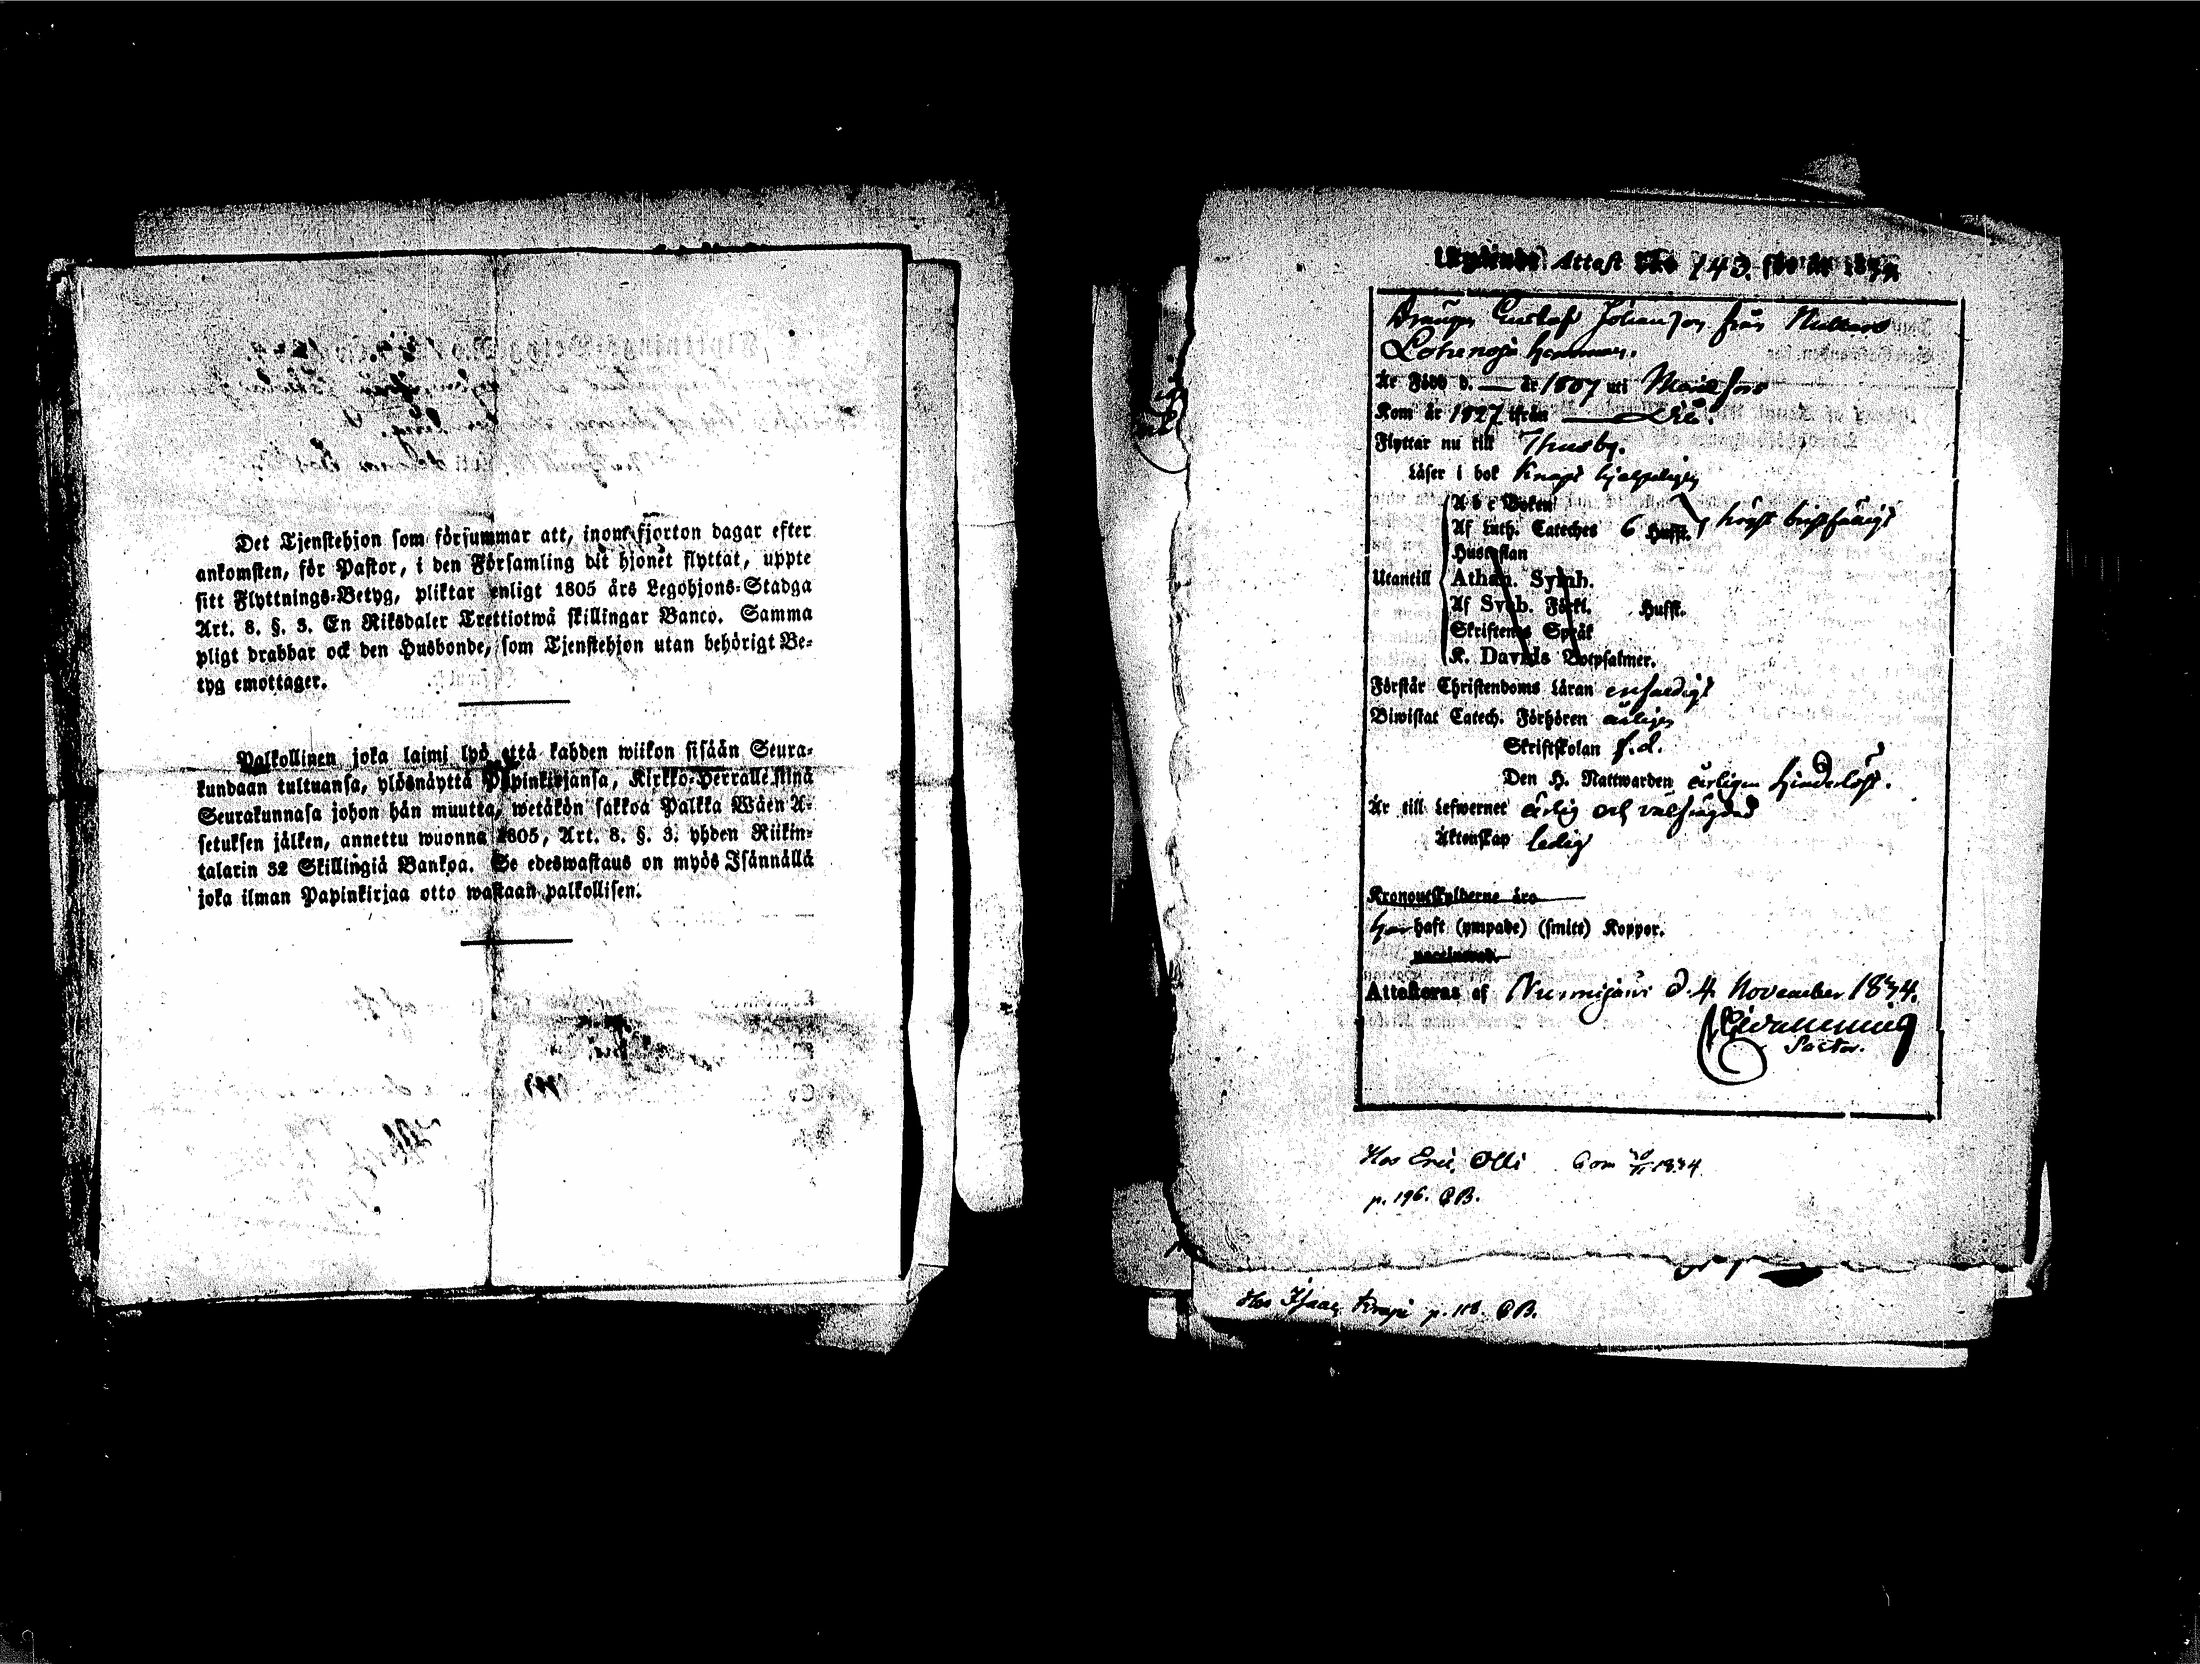 Det Tjenstehjon som försummar att, inom fjorton dagar efter
ankomsten, för Pastor, i den Församling dit hjonet flyttat, uppte
sitt Flyttnings-Betyg, pliktar enligt 1805 års Legohjons-Stadga
Art. 8. §. 3. En Riksdaler Trettiotwå skillingar Banco. Samma
pligt drabbar ock den Husbonde, som Tjenstehjon utan behörigt Be-
tyg emottager.
Palkollinen joka laimi lyö että kahden wiikon sisään Seura-
kundaan tultuansa, ylösnäyttä Papinkirjansa, Kirkko-Herralle siinä
Seurakunnasa johon hän muutta, wetäkön sakkoa Palkka Wäen A-
setuksen jälken, annettu wuonna 1805, Art. 8. §. 3. yhden Riikin-
talarin 32 Skillingiä Bankoa. Se edeswastaus on myös Isännällä
joka ilman Papinkirjaa otto wastaan palkollisen.
Attest 143.
Drängen Gustaf Johansson från
hemman.
Är Född d. — år 1807 uti
Kom år 1827 ifrån
Flyttar nu till Thusby.
Läser i bok knapt hjelpeligen
A b c Boken
Af Luth. Cateches 6 Hufst. högst bristfälligt
Hustaflan
Utantill Athan. Symb.
Af Sveb. Förkl. Hufst.
Skriftenes Språk
K. Davids Botpsalmer.
Förstår Christendoms Läran enfaldigt
Biwistat Catech. Förhören årligen
Skriftskolan
Den H. Nattwarden årligen hinderlöst.
Är till Lefwernet ärlig och välfrägdad
Äktenskap ledig
Kronoutskylderne äro
Har haft (ympade) (smitt) Koppor.
vaccinerad.
Attesteras af Nurmijärvi d. 4 November 1834.
Pastor.
Hos Eric Olli 1834
p. 196. CB.
Hos Isaac Krapi p. 118. CB.